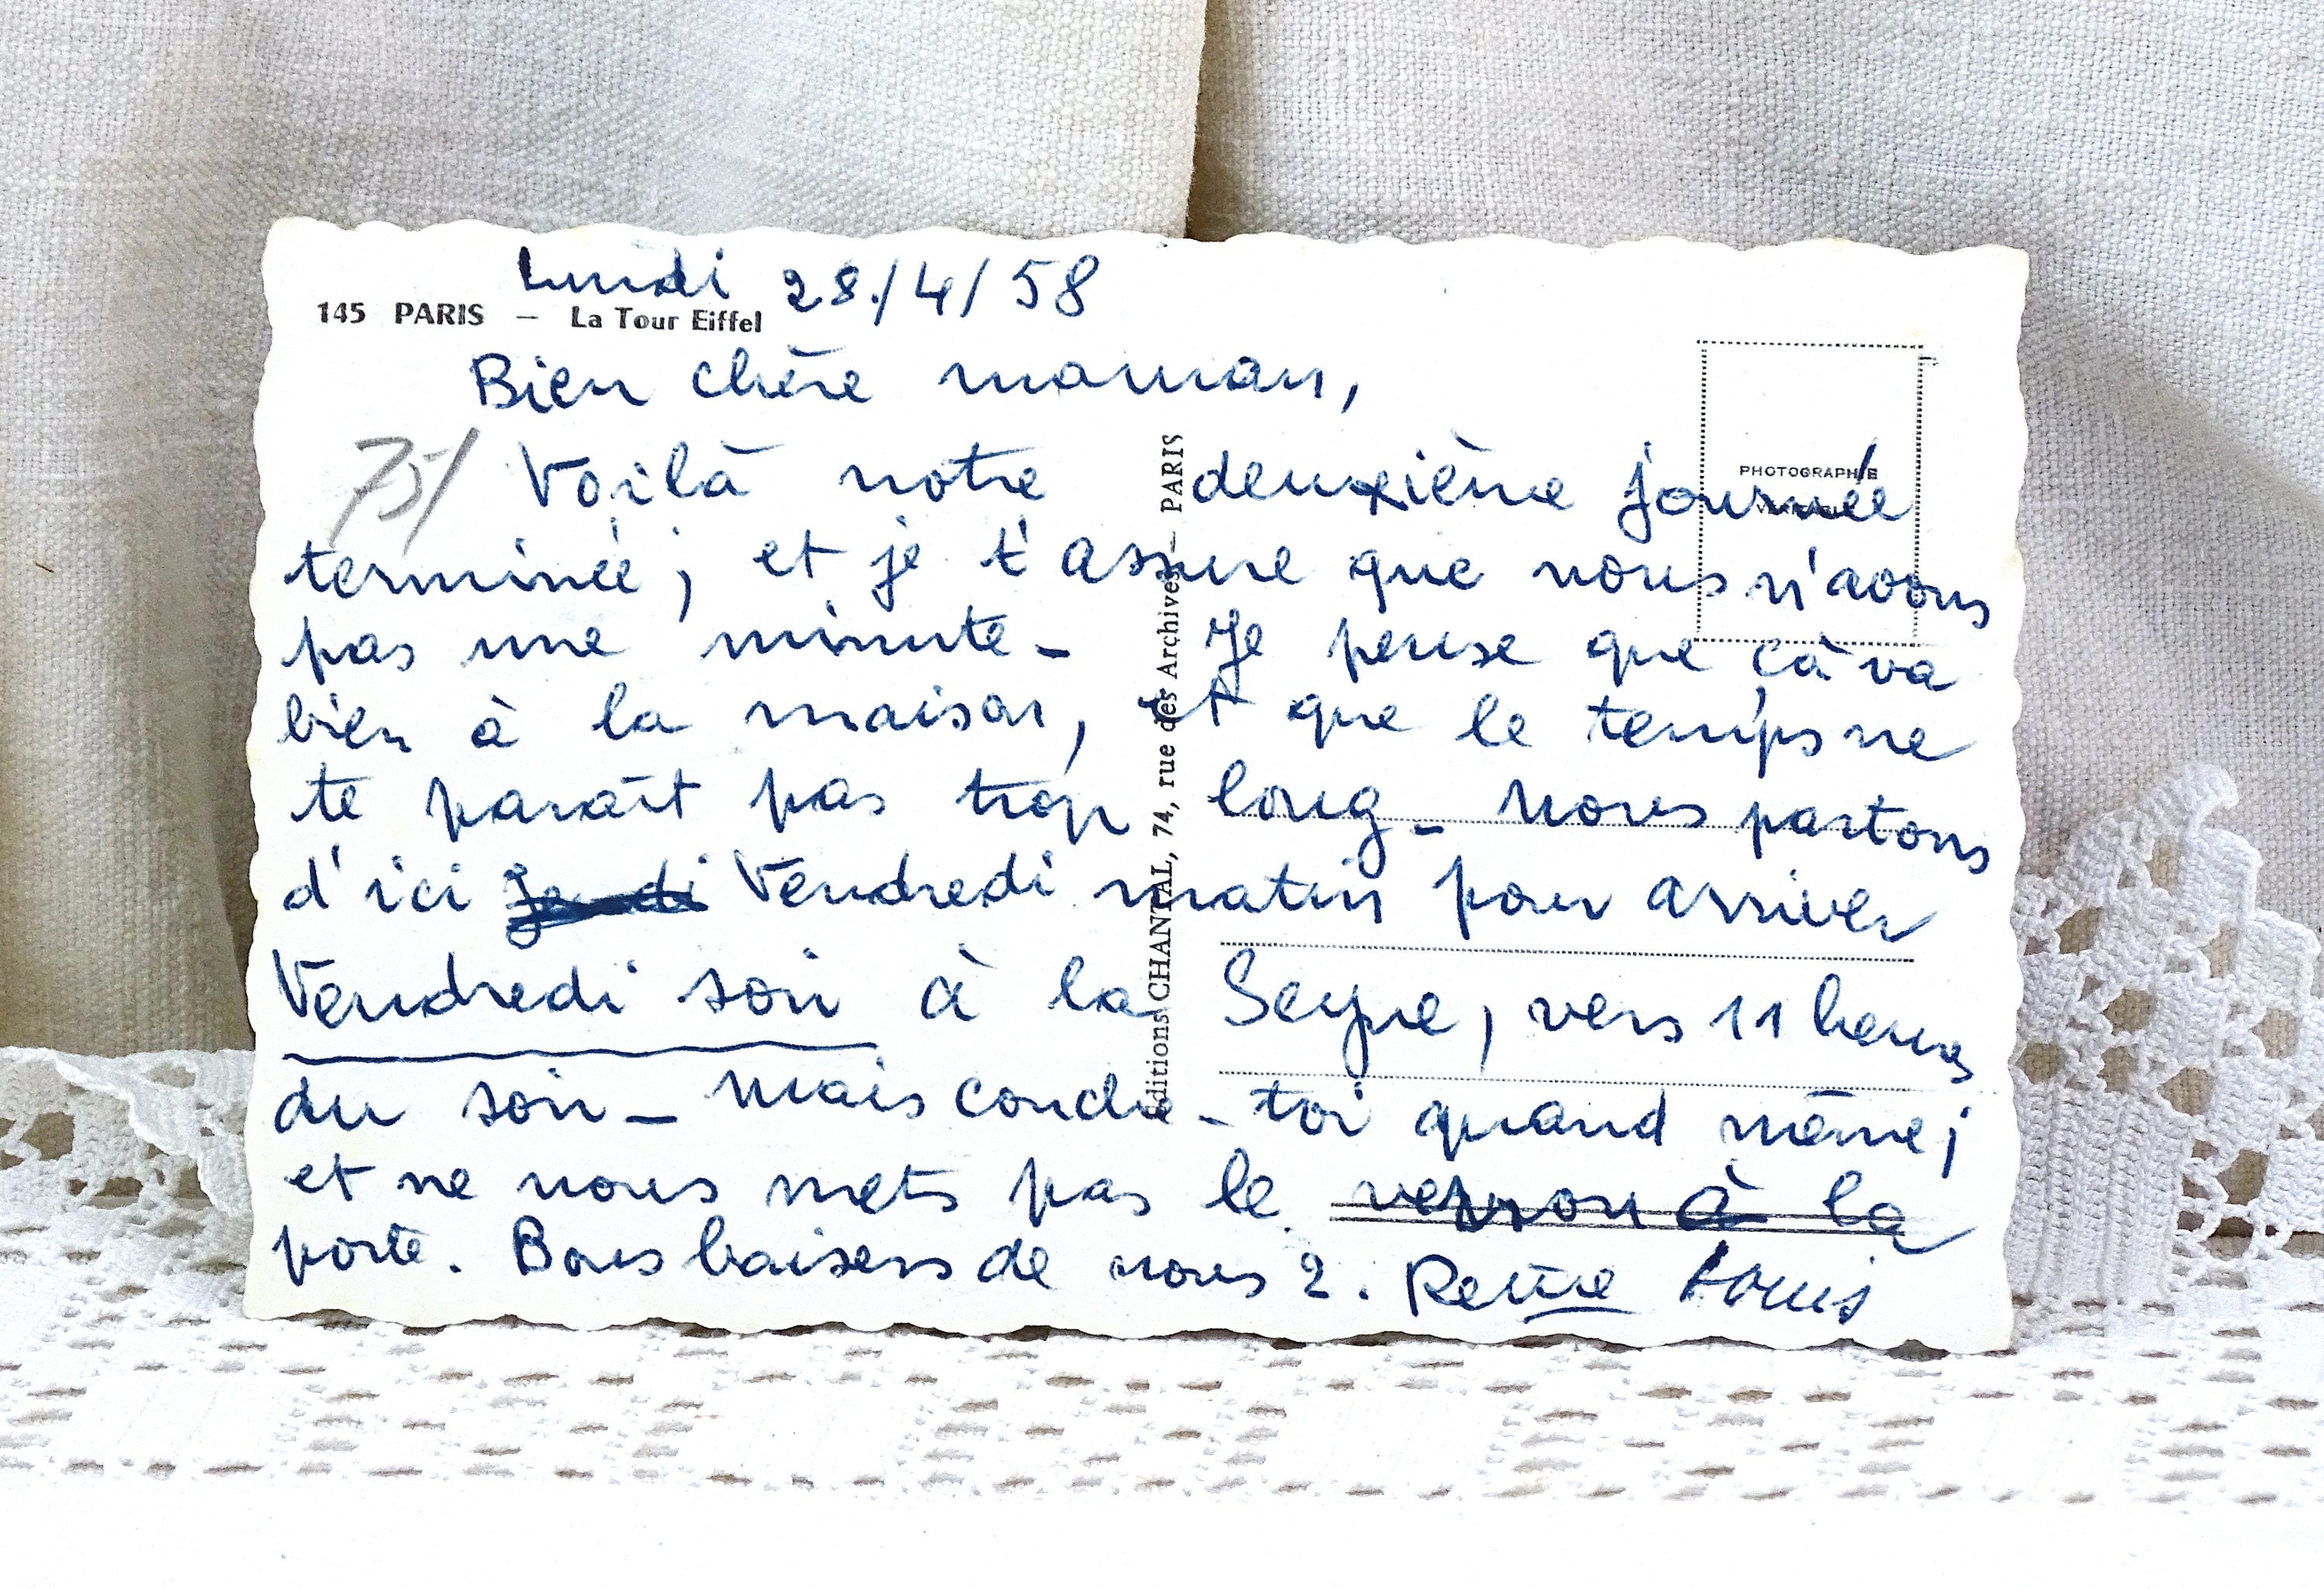 Lundi 28/4/58
145 PARIS — La Tour Eiffel
Bien chère maman,
75/
Voilà notre deuxième journée
terminée ; et je t'assure que nous n'avons
pas une minute - Je pense que çà va
bien à la maison, et que le temps ne
te paraît pas trop long - Nous partons
d'ici Jeudi Vendredi matin pour arriver
Vendredi soir à la Seyne, vers 11 heures
du soir - Mais couche-toi quand même ;
et ne nous mets pas le verrou à la
porte. Bons baisers de nous 2. Louis
Editions CHANTAL, 74, rue des Archives — PARIS
PHOTOGRAPHIE